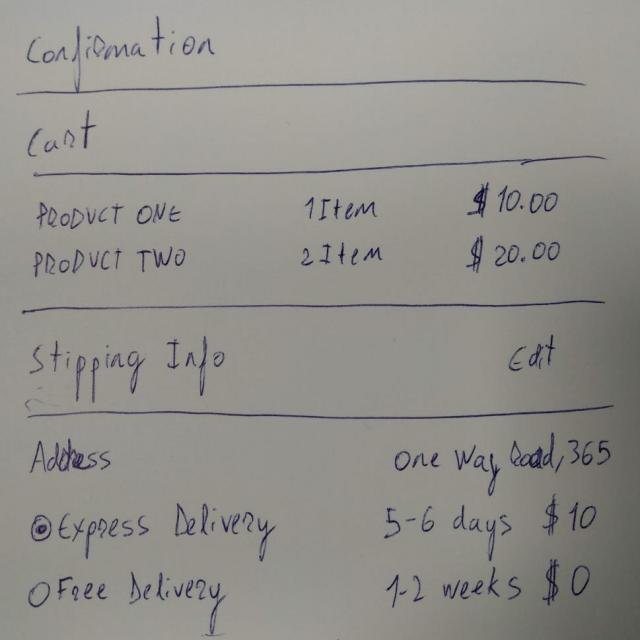 Confirmation
Cart
PRODUCT ONE 1 Item $ 10.00
PRODUCT TWO 2 Item $ 20.00
Stipping Info Edit
Address One Way Road, 365
Express Delivery 5-6 days $10
Free Delivery 1-2 weeks $0